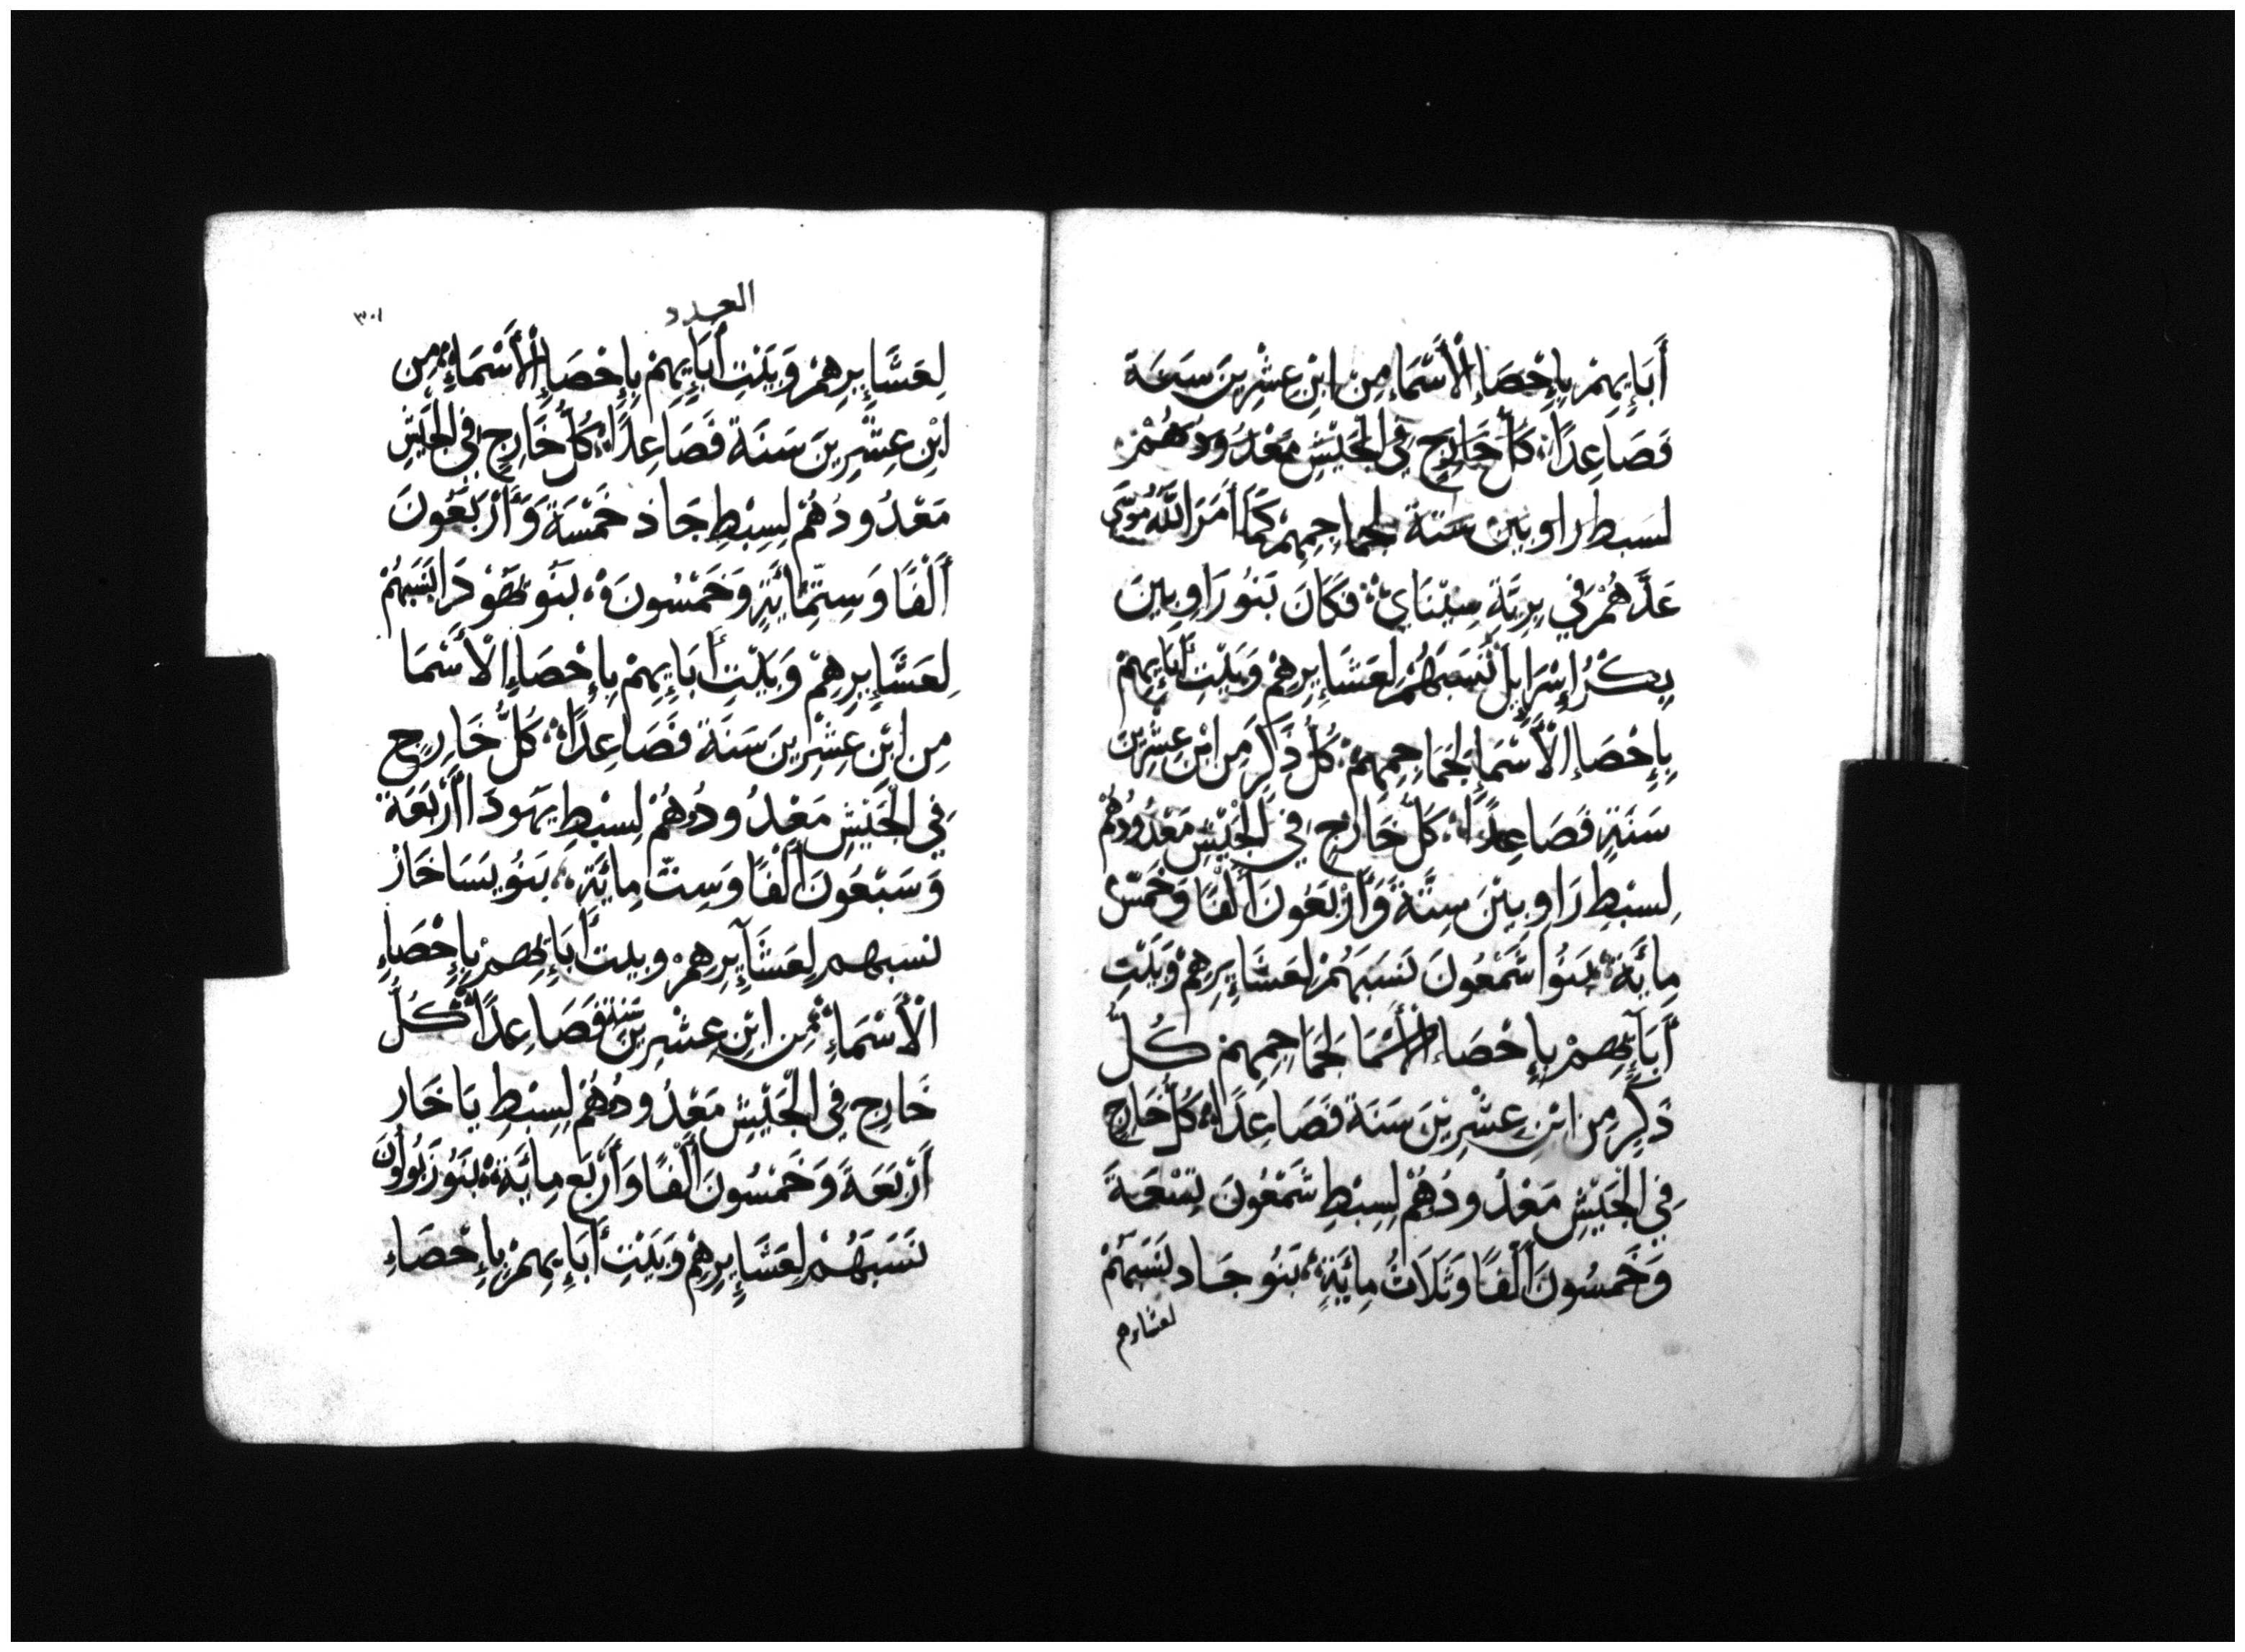 أَبَايِهِمْ بِإِحْصَاءِ الْأَسْمَاءِ مِنْ ابْنِ عِشْرِينَ سَنَةً
فَصَاعِدًا؞ كُلُّ خَارِجٍ فِي الْجَيْشِ مَعْدُودُهُمْ
لسبط راوبين ستة لجماجمهم كَمَا أَمَرَ اللَّهُ مُوسَى
عَدَّهُمْ فِي بَرِيَّةِ سِينَايَ؞ فَكَانَ بَنُو رَاوِبِينَ
بِكْرُ إِسْرَايِلَ نَسَبَهُمْ لِعَشَايِرِهِمْ وَبَيْتِ أَبَايِهِمْ
بِإِحْصَاءِ الْأَسْمَاءِ لِجَمَاجِمِهِمْ؞ كُلُّ ذَكَرٍ مِنِ ابْنِ عِشْرِينَ
سَنَةٍ فَصَاعِدًا؞ كُلُّ خَارِجٍ فِي الْجَيْشِ مَعْدُودُهُمْ
لِسِبْطِ رَاوِبِينَ سِتَّةً وَأَرْبَعُونَ أَلْفًا وَخَمْسُ
مِايَةٍ؞ بَنُوا شَمْعُونَ نَسَبَهُمْ لِعَشَايِرِهِمْ وَبَيْتِ
أَبَآيِهِمْ بِإِحْصَاءِ الْأَسْمَا لِجَمَاجِمِهِمْ كُلُّ
ذَكَرٍ مِنِ ابْنِ عِشْرِينَ سَنَةً فَصَاعِدًا؞ كُلُّ خَارِجٍ
فِي الْجَيْشِ مَعْدُودُهُمْ لِسِبْطِ شَمْعُونَ تِسْعَةً
وَخَمْسُونَ أَلْفًا وَثَلَاثُ مِايَةٍ؞ بَنُو جَاد نَسَبَهُمْ
لعشايرهم
العدد
٣٠١
لِعَشَايِرِهِمْ وَبَيْتِ أَبَايِهِمْ بِإِحْصَاءِ الْأَسْمَاءِ؞ مِن
ابْنِ عِشْرِينَ سَنَةً فَصَاعِدًا؞ كُلُّ خَارِجٍ فِي الْجَيْشِ
مَعْدُودُهُمْ لِسِبْطِ جَاذ خَمْسَةً وَأَرْبَعُونَ
أَلْفًا وَسِتُّمِائَةٍ وَخَمْسُونَ؞ بَنُو يَهُوذَا نَسَبَهُمْ
لِعَشَايِرِهِمْ وَبَيْتِ أَبَايِهِمْ بِإِحْصَاءِ الْأَسْمَا
مِن ابْنِ عِشْرِينَ سَنَةً فَصَاعِدًا؞ كُلُّ خَارِجٍ
فِي الْجَيْشِ مَعْدُودُهُمْ لِسِبْطِ يَهُودَا أَرْبَعَةً
وَسَبْعُونَ أَلْفًا وَسِتُّ مِايَةٍ؞ بَنُو يَسَاخَارْ
نسبهم لِعَشَآيِرِهِمْ وبيت أَبَايِهِمْ بِإِحْصَاءِ
الْأَسْمَاءِ؞ مِن ابْنِ عِشْرِينَ سنة فَصَاعِدًا؞ كُلُّ
خَارِجٍ فِي الْجَيْشِ مَعْدُودُهُمْ لِسِبْطِ يَاخَار
أَرْبَعَةً وَخَمْسُونَ أَلْفًا وَأَرْبَع مِايَةٍ؞ بَنُو زَبُولُونَ
نَسَبَهُمْ لِعَشَايِرِهِمْ وَبَيْتِ أَبَايِهِمْ بِإِحْصَاءِ